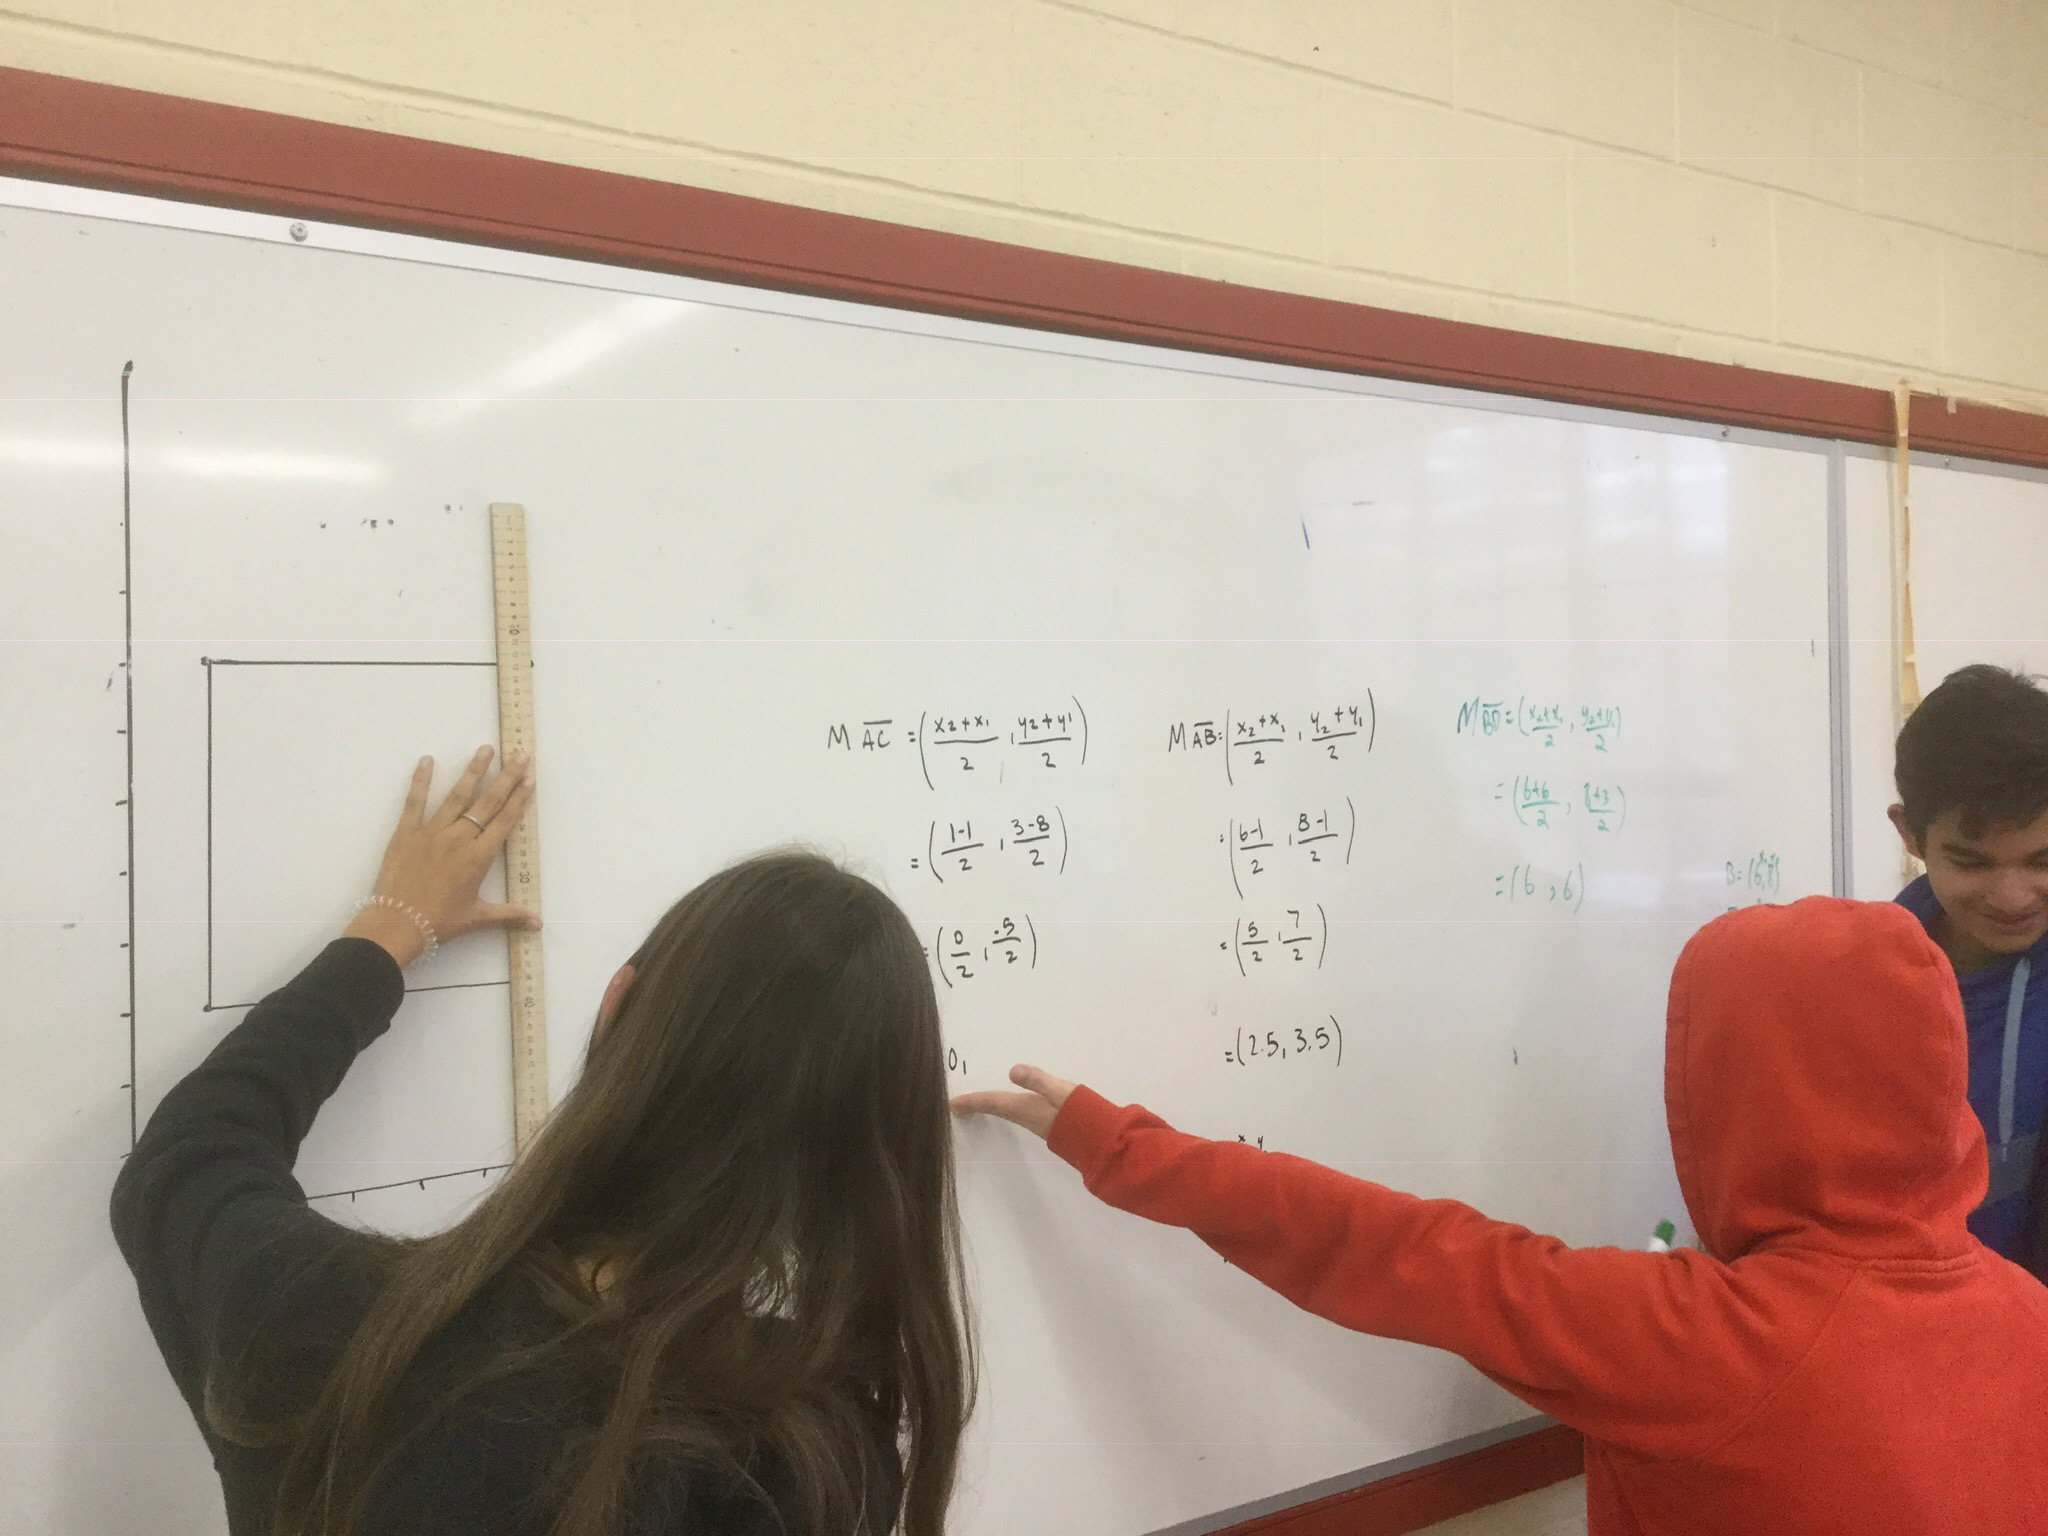 M AC = (x₂+x₁/2 , y₂+y₁/2)
= (1-1/2 , 3-8/2)
= (0/2 , -5/2)
0,
M AB = (x₂+x₁/2 , y₂+y₁/2)
= (6-1/2 , 8-1/2)
= (5/2 , 7/2)
= (2.5, 3.5)
x y
M BD = (x₂+x₁/2 , y₂+y₁/2)
= (6+6/2 , 8+3/2)
= (6 , 6)
x y
B = (6,8)
10
30
40